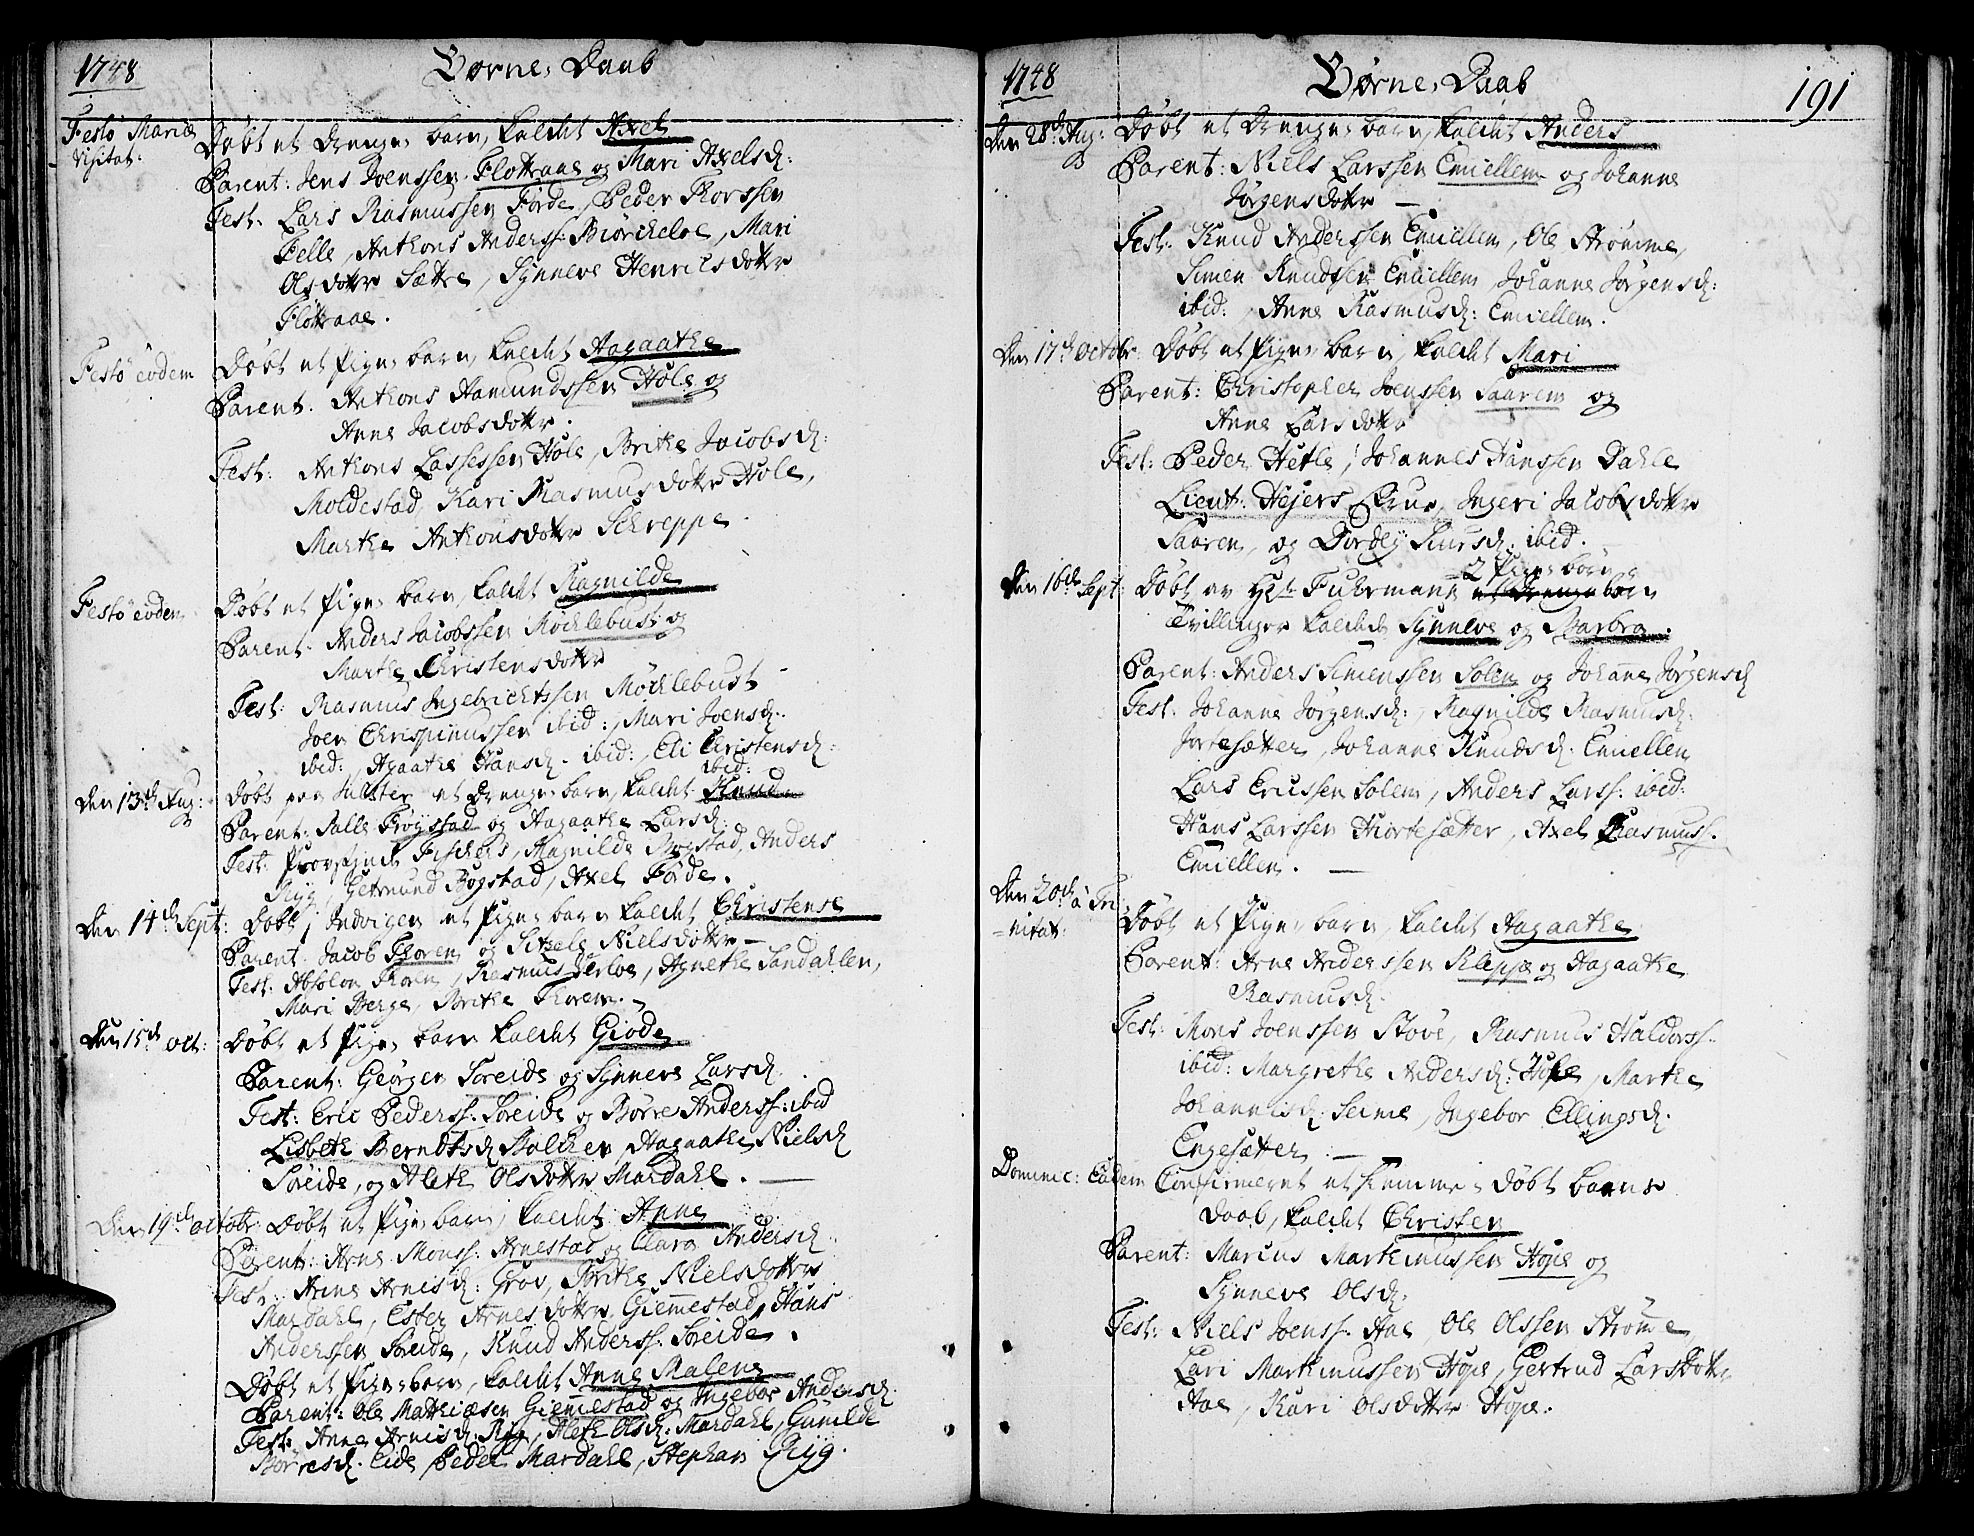 1748
Børne, Daab
Festo Mariæ
Visitat:
Døbt et Drenge, barn, kaldet Axel
Parent: Jens Joenssen Flottraae og Mari Axelsd:
Test: Lars Rasmussen Förde, Peder Thorssen
Felle, Anthons Anderss: Biørckeloe, Mari
Olsdottr Sættre, Synneve Henrichsdottr
Flottraae.
Festo eodem
Døbt et Pige, barn, kaldet Aagaathe
Parent. Anthons Aamundssen Hole og
Anne Jacobsdottr.
Test: Anthons Lassessen Hole, Brithe Jacobsd:
Moldestad, Kari Rasmusdottr Hole,
Marthe Anthonsdottr Schreppe
Festo eodem
Døbt et Pige, barn, kaldet Ragnilde
Parent. Anders Jacobssen Möcklebust og
Marthe Christensdottr
Test: Rasmus Ingebrichtssen Möcklebust
Joen Chrispinussen ibid:, Mari Joensd:
ibid:, Agaathe Hansd. ibid:, Eli Christensd:
ibid:
Den 13de Aug:
Døbt paa et Drenge, barn, kaldet Knud
Parent: Salle Frøystad og Aagaathe Larsd:
Test: Provstinde Fischers, Ragnilde Bogstad, Anders
Ryg, Getmund Bogstad, Axel Förde.
Den 14de Sept:
Døbt i Indvigen et Pige, barn kaldet Christense
Parent. Jacob Thoren og Sitzele Nielsdottr
Test. Absolon Thoren, Rasmus Verloe, Agnethe Sandahlen,
Mari Berge, Brithe Thoren.
Den 15de Oct:
Døbt et Pige, barn kaldet Giöde
Parent: Geörgen Soreide og Synneve Larsd.
Test: Eric Pederss: Soreide og Börre Anderss: ibid
Lisbeth Berndtsd Balchen, Aagaathe Nielsd
Söreide, og Aleth Olsdottr Mardahl.
Den 19de Octobr:
Døbt et Pige, barn, kaldet Anne
Parent: Arne Monss: Arnestad og Clara Andersd
Test: Anne Arnesd: Grov, Brithe Nielsdottr
Mardahl, Ester Arnesdottr Giemmestad, Hans
Anderssen Soreide, Knud Anderss: Soreide.
Døbt et Pige, barn, kaldet Anne Malene
Parent: Ole Mathiæsen Giemestad og Ingebor Andersd.
Test: Anne Arnesd: Ryg, Aleth Olsd: Mardahl, Gunilde
Börresd. Eide, Peder Mardahl, Stephan Ryg.
1748
Børne, Daab
191
Den 28de Aug:
Døbt et Drenge, barn, kaldet Anders
Parent: Niels Larssen Emiellem og Johanne
Jörgensdottr
Test: Knud Anderssen Emiellem, Ole Strömme,
Simen Knudssen Emiellem, Johanne Jörgensd:
ibid:, Anne Rasmusd: Emiellem.
Den 17de Octobr:
Døbt et Pige, barn, kaldet Mari
Parent: Christopher Joenssen Saarem og
Anne Larsdottr
Test: Peder Hetle, Johannes Hanssen Dahle
Lieut: Hejers Frue, Ingeri Jacobsdottr
Saarem, og Dordeij ibid.
Den 16de Sept:
2 Pige, börn
Døbt av Hr: Fuhrmann et Drenge barn
Tvillinger kaldede Synneve og Barbra.
Parent: Anders Simenssen Solem og Johane Jörgensd
Test: Johanne Jörgensd:, Ragnilde Rasmusd:
Jortesætter, Johanne Knudsd. Emiellem
Lars Erussen Solem, Anders Larss: ibid:
Hans Larssen Hiortesætter, Axel Rasmuss.
Emiellem.
Den 20de à Tri
nitat:
Døbt et Pige, barn, kaldet Aagaathe
Parent: Arne Anderssen Kleppe og Aagaathe
Rasmusd.
Test: Mons Joenssen Stöve, Rasmus Haldorss.
ibid: Margrethe Andersd: Hope, Marthe
Johannisd: Seime, Ingebor Ellingsd.
Engesætter.
Dominic: Eadem
Confirmeret et Hiemme, døbt barns
Daab, kaldet Christen
Parent: Marcus Marthmussen Hope og
Synneve Olsd.
Test: Niels Joenss. Aae, Ole Olssen Strömme,
Lari Marthmussen Hope, Gertrud Larsdottr
Aae, Kari Olsdottr Hope.